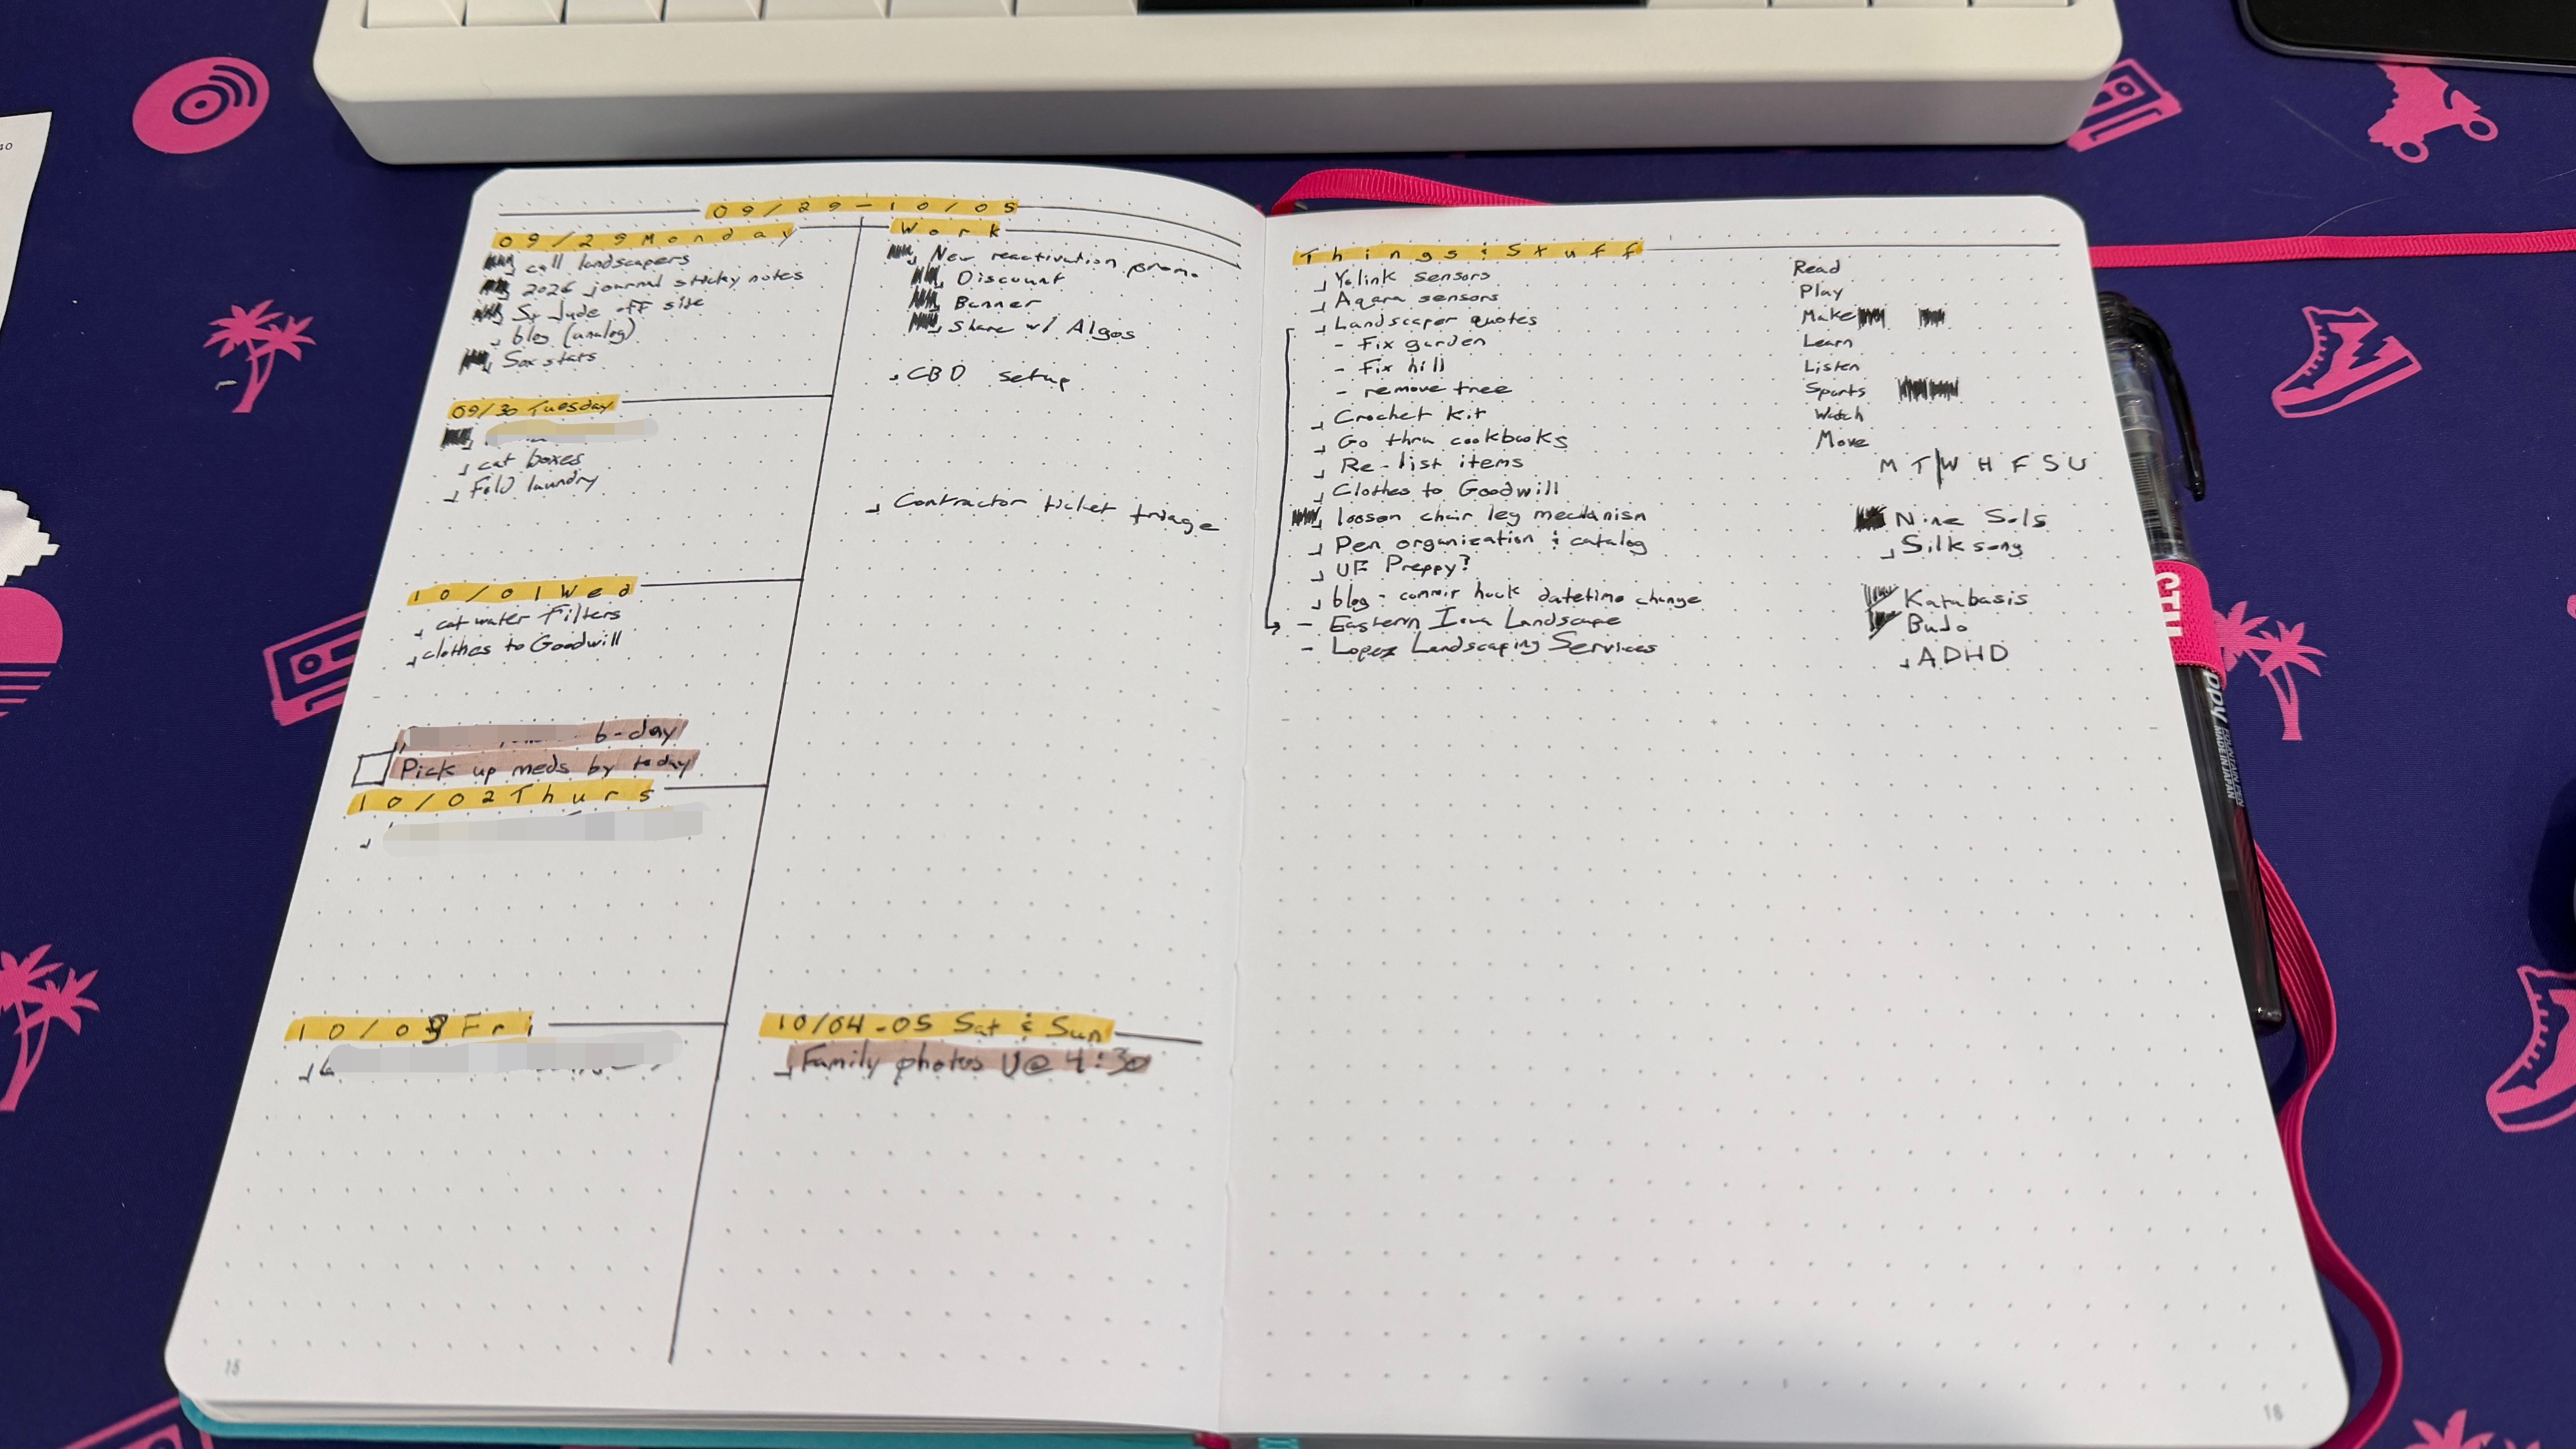 09/29-10/05
09/29 Monday
call landscapers
2026 journal sticky notes
St Jude off site
blog (analog)
Sox stats
09/30 Tuesday
cat boxes
Fold laundry
10/01 Wed
cat water Filters
clothes to Goodwill
b-day
Pick up meds by today
10/02 Thurs
10/03 Fri
Work
New reactivation promo
Discount
Banner
Share w/ Algos
CBD setup
Contractor ticket triage
10/04-05 Sat & Sun
Family photos U@ 4:30
18
Things & Stuff
Yolink sensors
Aqara sensors
Landscaper quotes
- Fix garden
- Fix hill
- remove tree
Crochet kit
Go thru cookbooks
Re-list items
Clothes to Goodwill
loosen chair leg mechanism
Pen organization & catalog
UF Preppy?
blog - commit hook datetime change
- Eastern Iowa Landscape
- Lopez Landscaping Services
Read
Play
Make
Learn
Listen
Sports
Watch
Move
M T W H F S U
Nine Sols
Silksong
Katabasis
Budo
ADHD
18
FOUNTAIN PEN
MADE IN JAPAN